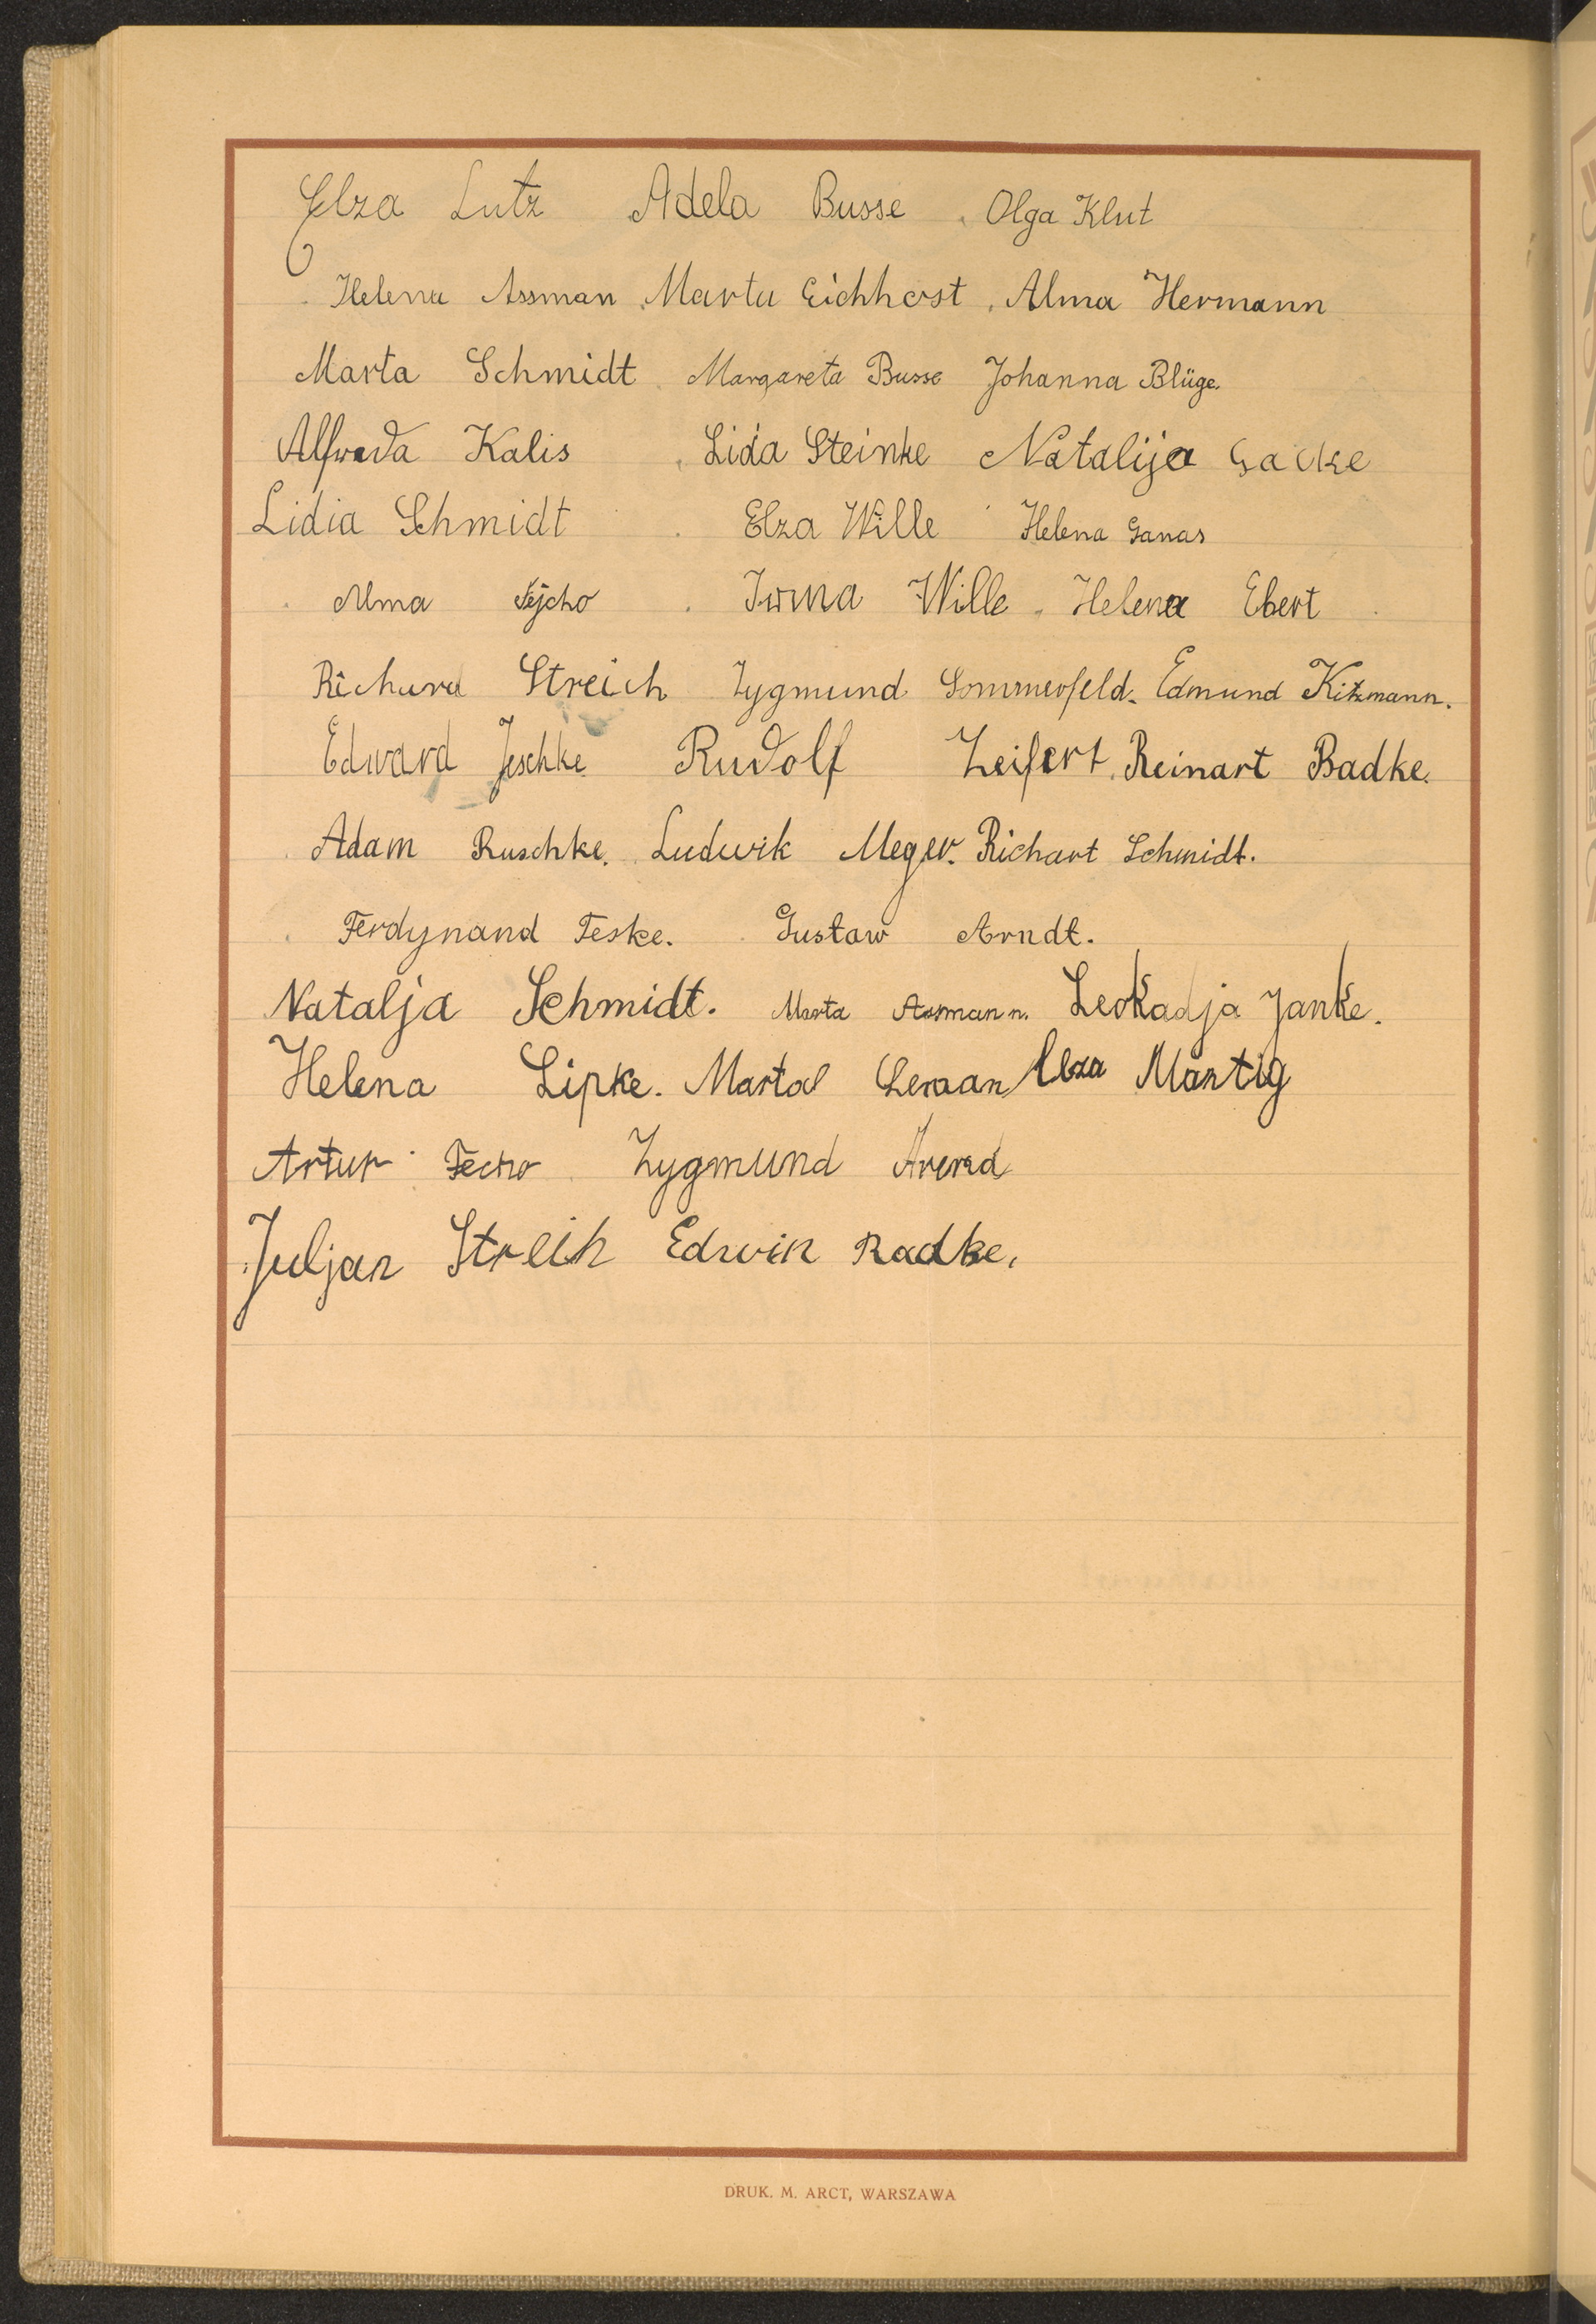 Elza Lutz Adela Busse Olga Klut
Helena Assman Marta Eichhorst Alma Hermann
Marta Schmidt Margareta Busse Johanna Blüge.
Alfreda Kalis Lida Steinke Natalija
Lidia Schmidt Elza Wille Helena Ganas
Alma Irma Wille Helena Ebert
Richard Streich Zygmund Sommerfeld. Edmund Kitzmann.
Edward Jeschke Rudolf Zeifert Reinart Badke.
Adam Ruschke. Ludwik Meger. Richart Schmidt.
Ferdynand Teske. Gustaw Arndt.
Natalja Schmidt. Marta Assmann. Leokadja Janke.
Helena Lipke. Marta Elza Martig
Artur Zygmund
Juljan Streih Edwin Radke.
DRUK. M. ARCT, WARSZAWA